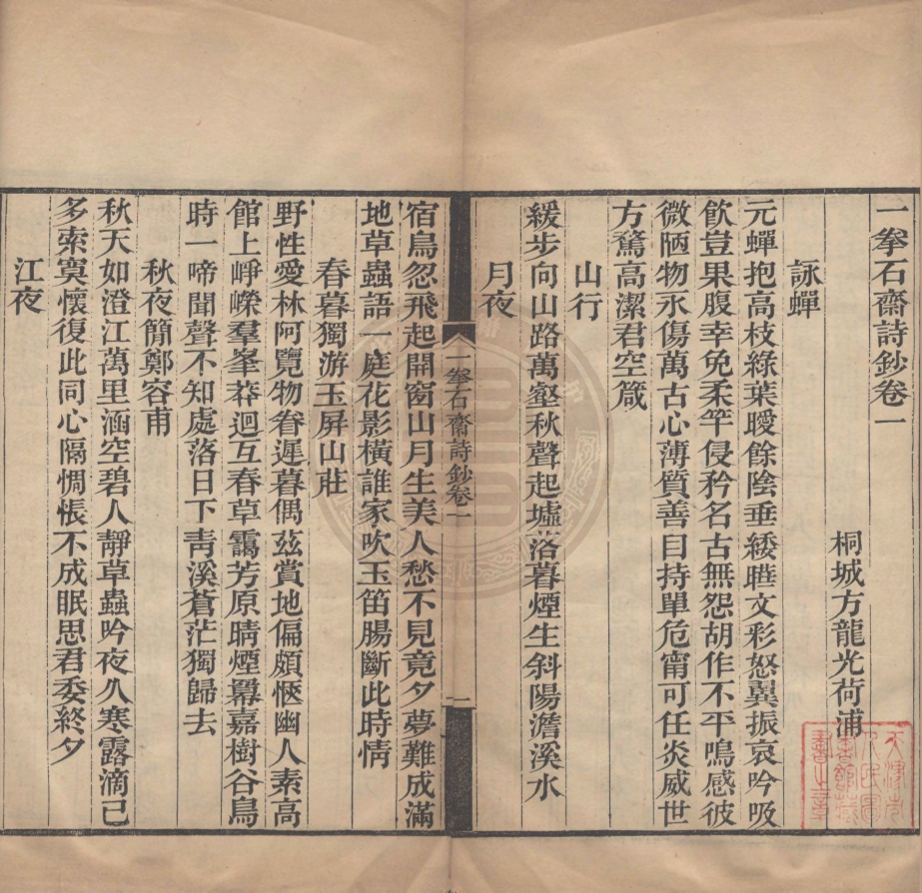 一拳石齋詩鈔卷一
桐城方龍光荷浦
詠蟬
元蟬抱高枝綠葉曖餘陰垂緌聯文彩怒翼振哀吟吸
飲豈果腹幸免柔竿侵矜名古無怨胡作不平鳴感彼
微陋物永傷萬古心薄質善自持單危甯可任炎威世
方騖高潔君空箴
山行
緩步向山路萬壑秋聲起墟落暮煙生斜陽澹溪水
月夜
一拳石齋詩鈔卷一
一
宿鳥忽飛起開窗山月生美人愁不見竟夕夢難成滿
地草蟲語一庭花影橫誰家吹玉笛腸斷此時情
春暮獨游玉屏山莊
野性愛林阿覽物眷遲暮偶茲賞地偏頗愜幽人素高
館上崢嶸羣峯莽迴互春草靄芳原晴煙羃嘉樹谷鳥
時一啼聞聲不知處落日下靑溪蒼茫獨歸去
秋夜簡鄭容甫
秋天如澄江萬里涵空碧人靜草蟲吟夜久寒露滴已
多索寞懷復此同心隔惆悵不成眠思君委終夕
江夜
天津市
人民圖
書館藏
書之章